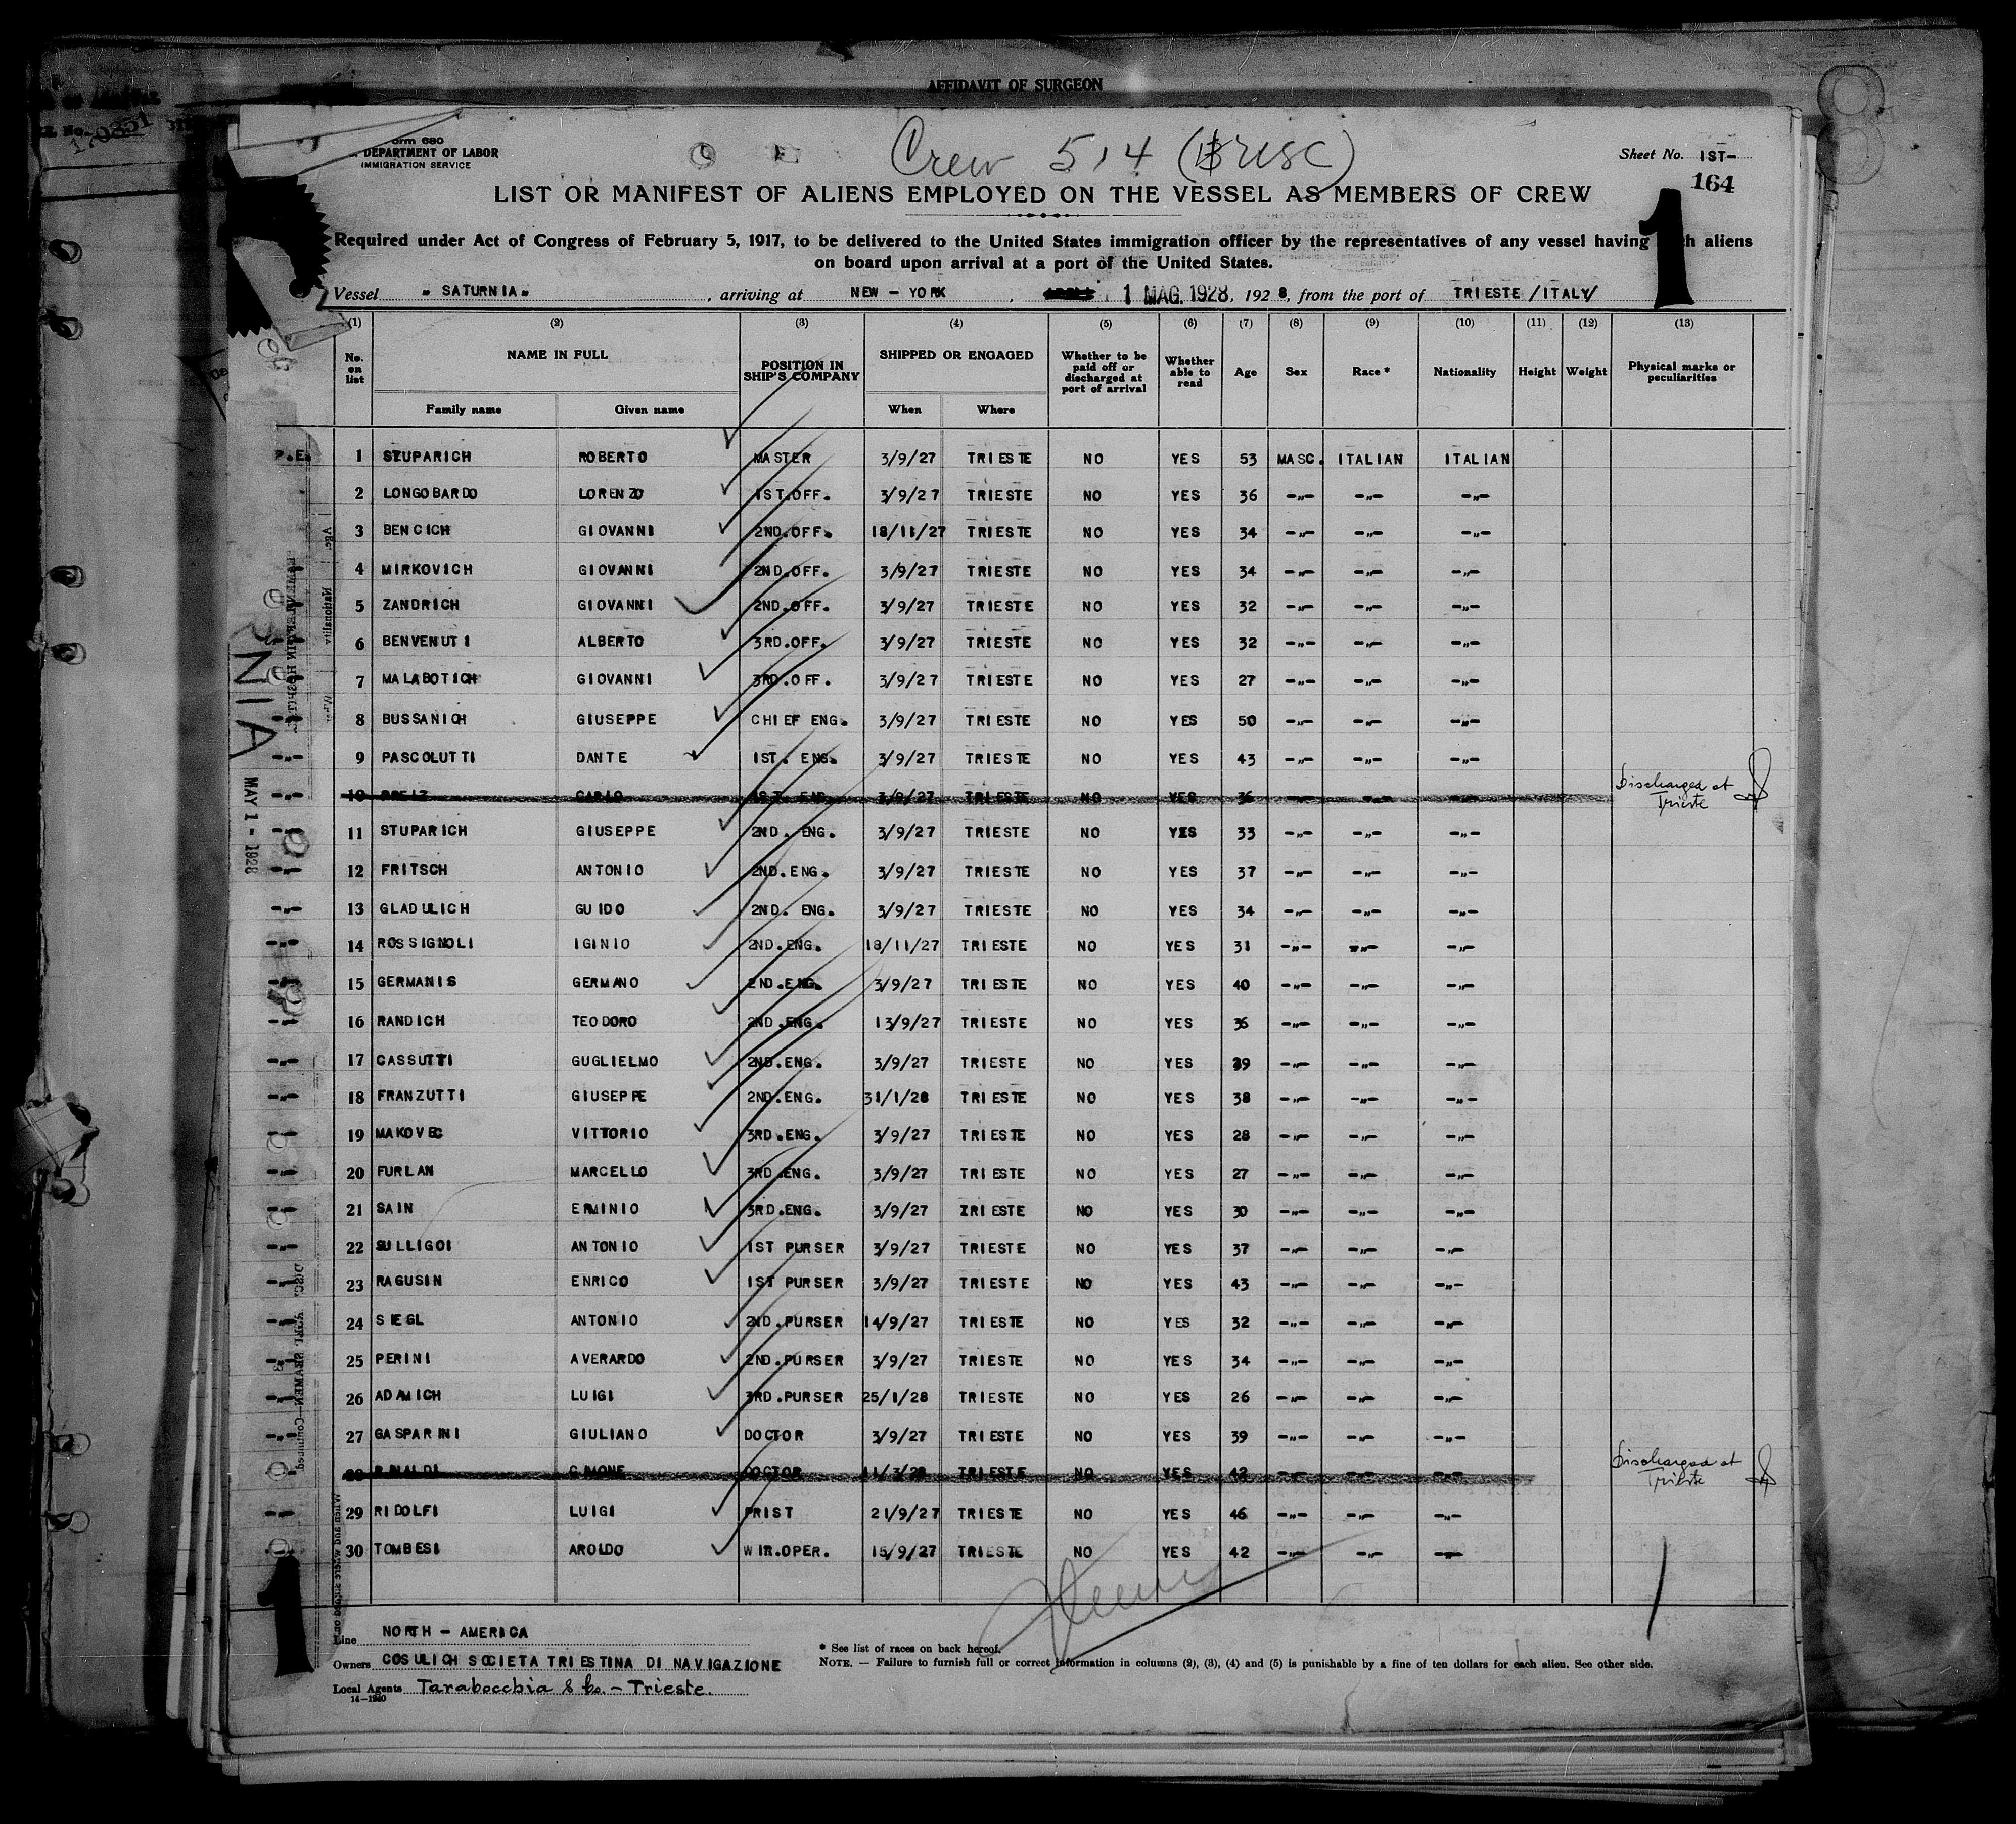 AFFIDAVIT OF SURGEON
170351
orm 680
DEPARTMENT OF LABOR
IMMIGRATION SERVICE
Crew 514
Sheet No. 1ST-
164
1
LIST OR MANIFEST OF ALIENS EMPLOYED ON THE VESSEL AS MEMBERS OF CREW
Required under Act of Congress of February 5, 1917, to be delivered to the United States immigration officer by the representatives of any vessel having aliens
on board upon arrival at a port of the United States.
Vessel „ SATURNIA„ , arriving at NEW - YORK , 1 MAG. 1928, 192 8, from the port of TRIESTE /ITALY/
(1) (2) (3) (4) (5) (6) (7) (8) (9) (10) (11) (12) (13)
No. on list NAME IN FULL Family name Given name POSITION IN SHIP'S COMPANY SHIPPED OR ENGAGED When Where Whether to be paid off or discharged at port of arrival Whether able to read Age Sex Race * Nationality Height Weight Physical marks or peculiarities
P.E. 1 STUPARICH ROBERTO MASTER 3/9/27 TRIESTE NO YES 53 MASC. ITALIAN ITALIAN
2 LONGOBARDO LORENZO 1ST.OFF. 3/9/27 TRIESTE NO YES 36 -„- -„- -„-
3 BENCICH GIOVANNI 2ND.OFF. 18/11/27 TRIESTE NO YES 34 -„- -„- -„-
4 MIRKOVICH GIOVANNI 2ND.OFF. 3/9/27 TRIESTE NO YES 34 -„- -„- -„-
5 ZANDRICH GIOVANNI 2ND.OFF. 3/9/27 TRIESTE NO YES 32 -„- -„- -„-
6 BENVENUTI ALBERTO 3RD.OFF. 3/9/27 TRIESTE NO YES 32 -„- -„- -„-
7 MALABOTICH GIOVANNI 3RD.OFF. 3/9/27 TRIESTE NO YES 27 -„- -„- -„-
8 BUSSANICH GIUSEPPE CHIEF ENG. 3/9/27 TRIESTE NO YES 50 -„- -„- -„-
-„- 9 PASCOLUTTI DANTE 1ST. ENG. 3/9/27 TRIESTE NO YES 43 -„- -„- -„-
-„- 10 CARLO 1ST. ENG. 3/9/27 TRIESTE NO YES 36 -„- -„- -„- Discharged at Trieste
-„- 11 STUPARICH GIUSEPPE 2ND. ENG. 3/9/27 TRIESTE NO YES 33 -„- -„- -„-
-„- 12 FRITSCH ANTONIO 2ND.ENG. 3/9/27 TRIESTE NO YES 37 -„- -„- -„-
-„- 13 GLADULICH GUIDO 2ND. ENG. 3/9/27 TRIESTE NO YES 34 -„- -„- -„-
-„- 14 ROSSIGNOLI IGINIO 2ND.ENG. 18/11/27 TRIESTE NO YES 31 -„- -„- -„-
-„- 15 GERMANIS GERMANO 2ND.ENG. 3/9/27 TRIESTE NO YES 40 -„- -„- -„-
-„- 16 RANDICH TEODORO 2ND.ENG. 13/9/27 TRIESTE NO YES 36 -„- -„- -„-
-„- 17 CASSUTTI GUGLIELMO 2ND.ENG. 3/9/27 TRIESTE NO YES 39 -„- -„- -„-
-„- 18 FRANZUTTI GIUSEPPE 2ND.ENG. 31/1/28 TRIESTE NO YES 38 -„- -„- -„-
-„- 19 MAKOVEC VITTORIO 3RD.ENG. 3/9/27 TRIESTE NO YES 28 -„- -„- -„-
-„- 20 FURLAN MARCELLO 3RD.ENG. 3/9/27 TRIESTE NO YES 27 -„- -„- -„-
-„- 21 SAIN ERMINIO 3RD.ENG. 3/9/27 ZRIESTE NO YES 30 -„- -„- -„-
-„- 22 SULLIGOI ANTONIO 1ST PURSER 3/9/27 TRIESTE NO YES 37 -„- -„- -„-
-„- 23 RAGUSIN ENRICO 1ST PURSER 3/9/27 TRIESTE NO YES 43 -„- -„- -„-
-„- 24 SIEGL ANTONIO 2ND.PURSER 14/9/27 TRIESTE NO YES 32 -„- -„- -„-
-„- 25 PERINI AVERARDO 2ND.PURSER 3/9/27 TRIESTE NO YES 34 -„- -„- -„-
-„- 26 ADAMICH LUIGI 3RD.PURSER 25/1/28 TRIESTE NO YES 26 -„- -„- -„-
-„- 27 GASPARINI GIULIANO DOCTOR 3/9/27 TRIESTE NO YES 39 -„- -„- -„-
28 RINALDI DOCTOR 11/3/28 TRIESTE NO YES 42 -„- -„- -„- Discharged at Trieste
-„- 29 RIDOLFI LUIGI PRIST 21/9/27 TRIESTE NO YES 46 -„- -„- -„-
-„- 30 TOMBESI AROLDO WIR.OPER. 15/9/27 TRIESTE NO YES 42 -„- -„- -„-
NIA
MAY 1 - 1928
1
Line NORTH - AMERICA
Owners COSULICH SOCIETA TRIESTINA DI NAVIGAZIONE
Local Agents Tarabocchia & Co. - Trieste.
14-1240
* See list of races on back hereof.
NOTE. — Failure to furnish full or correct information in columns (2), (3), (4) and (5) is punishable by a fine of ten dollars for each alien. See other side.